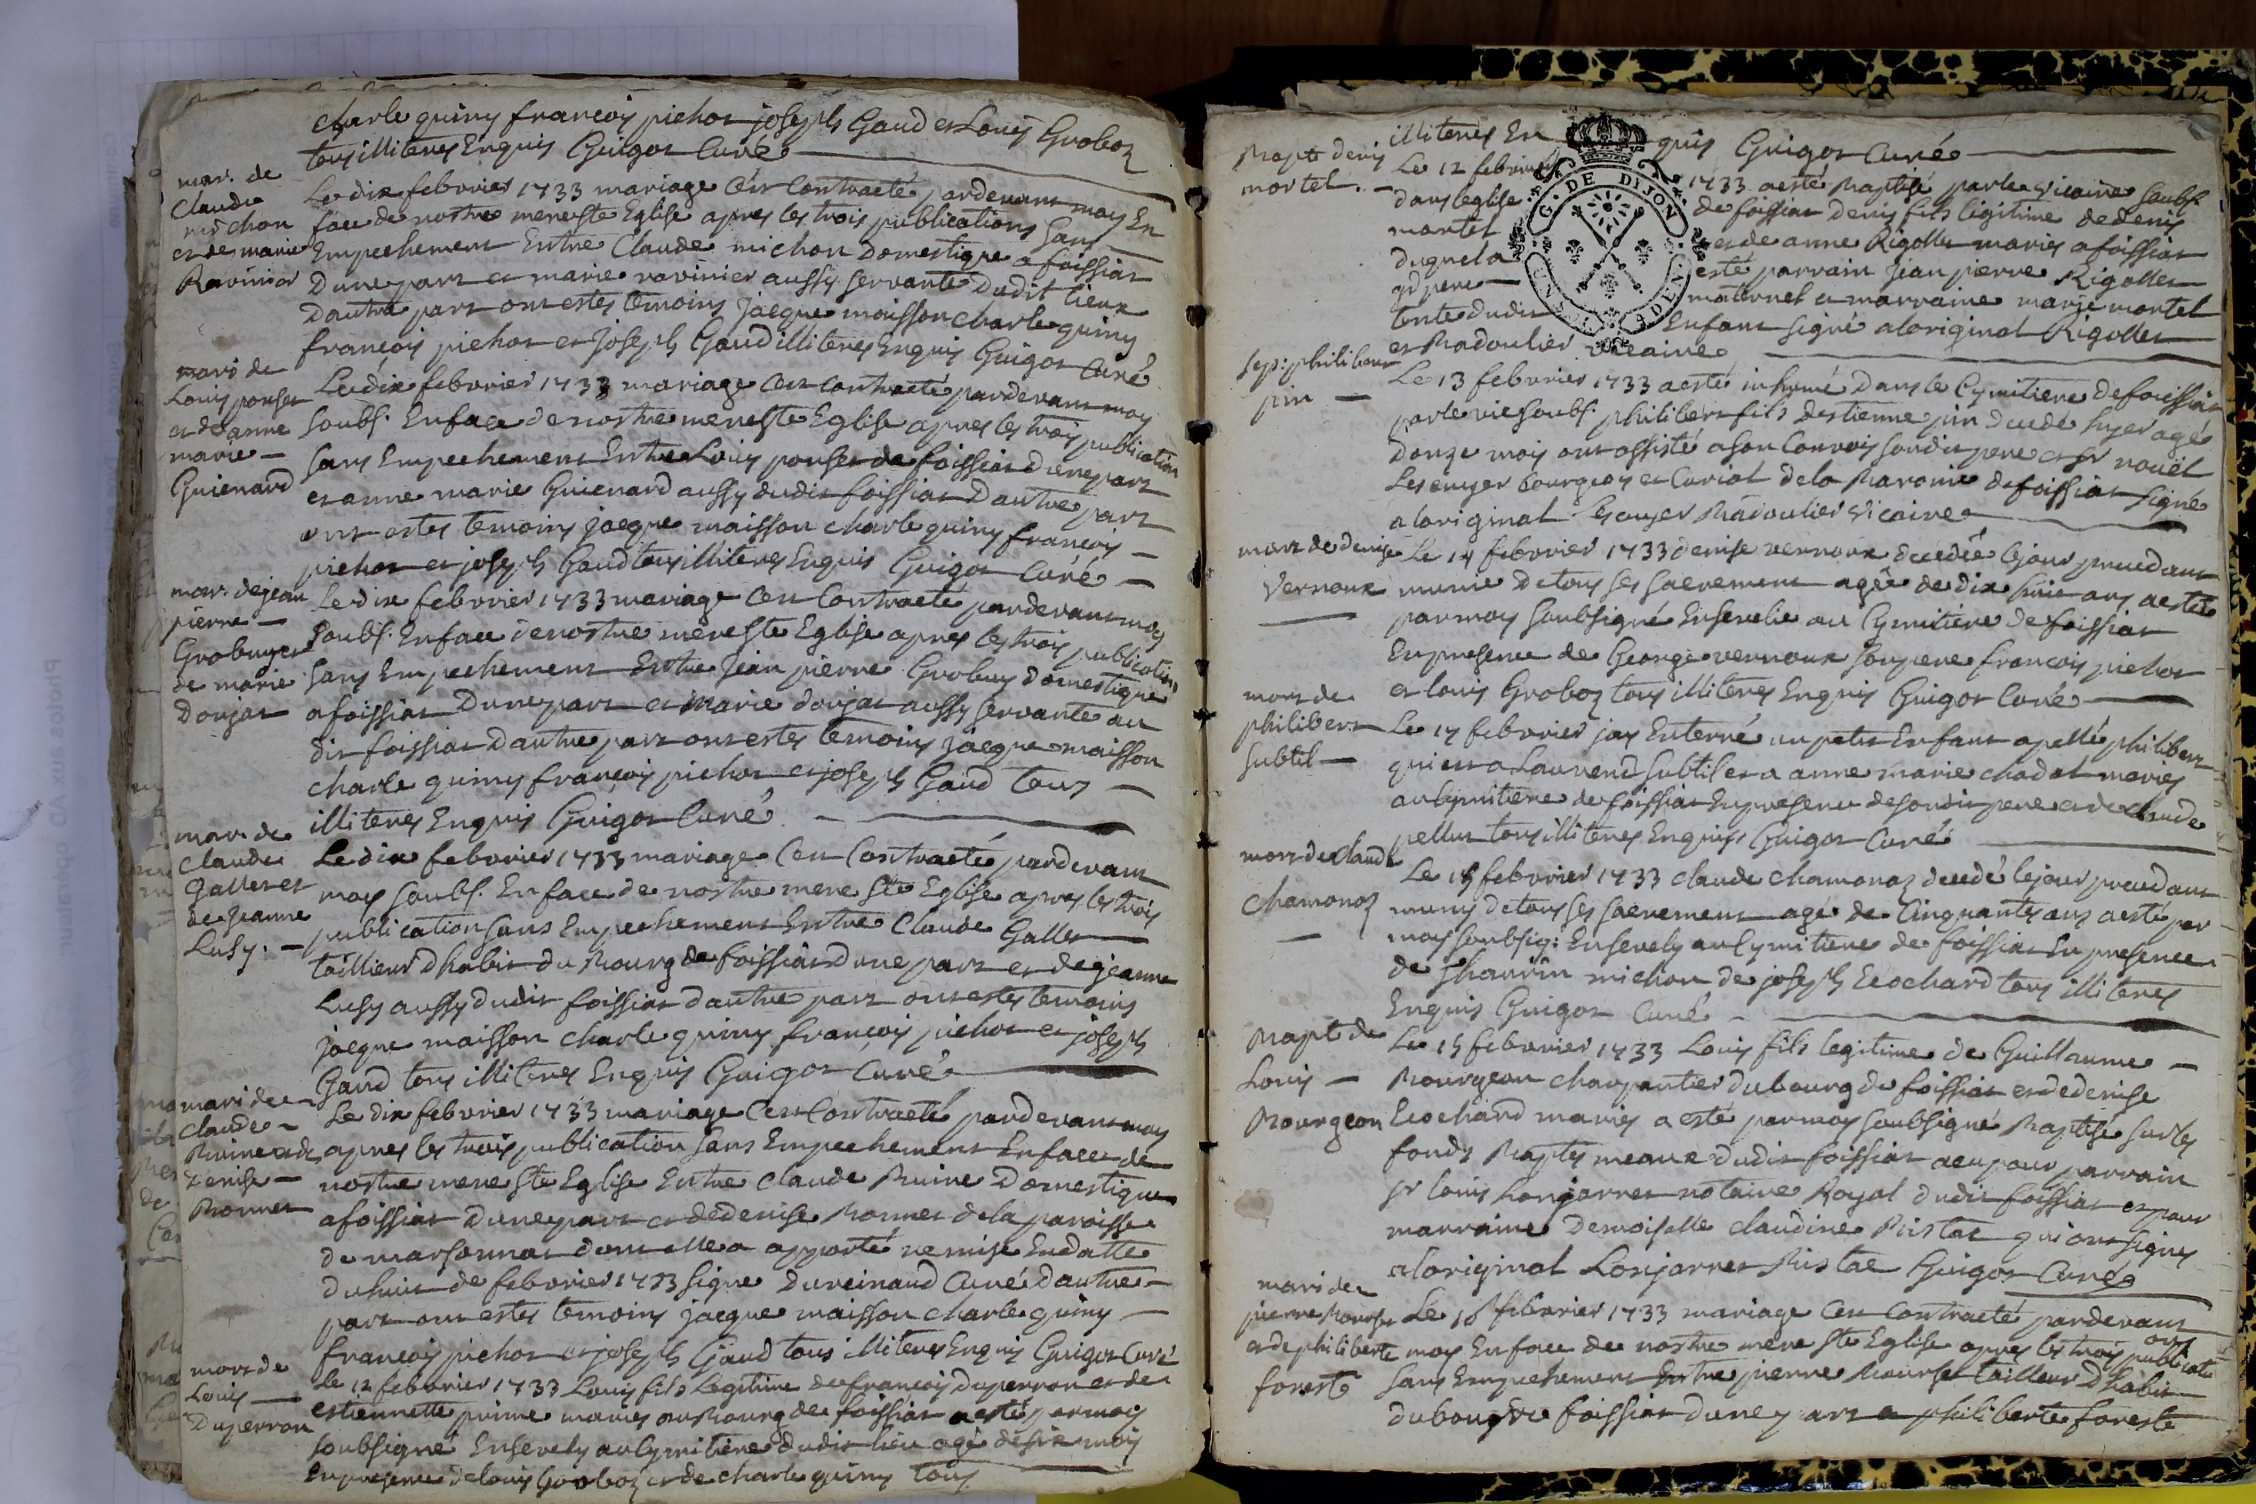 charle quiny françois pichot joseph Gaud et Louis Groboz
tous illiteres Enquis Guigot Curé
mar. de
Claude
michon
et de marie
Ravinier
Le dix febvrier 1733 mariage C'est Contracté pardevant moy En
face de nostre mere ste Eglise apres les trois publications sans
Empechement Entre Claude michon Domestique a foissiat
d'une part et marie ravinier aussy servante dudit lieux
d'autre part ont estes temoins jacque maisson charle quiny
françois pichot et Joseph Gaud illiteres Enquis Guigot Curé
mari de
Louis ponset
et de anne
marie
Guienard
Le dix febvrier 1733 mariage C'est Contracté pardevant moy
soubs. En face de nostre mere ste Eglise apres les trois publication
sans Empechement Entre Louis ponset de foissiat d'une part
et anne marie Guienard aussy dudit foissiat d'autre part
ont estes temoins jacque maisson charle quiny françois
pichot et joseph Gaud tous illiteres Enquis Guigot Curé
mar. de jean
pierre
Grobuy et
de marie
Donjat
Le dix febvrier 1733 mariage C'est Contracté pardevant moy
soubs. En face de nostre mere ste Eglise apres les trois publication
sans Empechement Entre Jean pierre Grobuy domestique
a foissiat D'une part et Marie donjat aussy servante au
dit foissiat d'autre part ont estes temoins jacque maisson
charle quiny françois pichot et joseph Gaud tous
illiteres Enquis Guigot Curé
mar. de
Claude
Gallet et
de Jeanne
Lusy.
Le dix febvrier 1733 mariage C'est Contracté pardevant
moy soubs. En face de nostre mere ste Eglise apres les trois
publication sans Empechement Entre Claude Gallet
taillieur d'habit du Bourg de foissiat d'une part et de jeanne
Lusy aussy dudit foissiat d'autre part ont estes temoins
jacque maisson charle quiny françois pichot et joseph
Gaud tous illiteres Enquis Guigot Curé
mari de
Claude
Buine et de
Denise
Bonnet
Le dix febvrier 1733 mariage C'est Contracté pardevant moy
apres les trois publication sans Empechement En face de
nostre mere ste Eglise Entre Claude Buine Domestique
a foissiat D'une part et de denise Bonnet de la paroisse
de marsonnat dont elle a apporté remise En datte
du huit de febvrier 1733 signe Curé d'autre
part ont estes temoins jacque maisson charle quiny
françois pichot et joseph Gaud tous illiteres Enquis Guigot Curé
mort de
Louis
Duperron
Le 12 febvrier 1733 Louis fils Legitime de françois duperron et de
estiennette mariés au Bourg de foissiat a esté par moy
soubsigné Ensevely au Cymitiere dudit lieu agé de six mois
En presence de Louis Groboz et de charle quiny tous
illiteres Enquis Guigot Curé
G. DE DIJON
Bapt denis
mortel.
Le 12 febvrier 1733 a esté Baptisé par le vicaire soubs.
dans l'eglise de foissiat denis fils legitime de denis
mortel et de anne Rigollet mariés a foissiat
duquel a esté parrain jean pierre Rigollet
gd pere maternel et marraine marie mortel
tente dudit Enfant signé a l'original Rigollet
et Badoulier vicaire
sep: philibert
pin
Le 13 febvrier 1733 a esté inhumé dans le Cymitiere de foissiat
par le vic soubs. philibert fils d'estienne pin decedé hyer agé
donze mois ont assisté a son Convois son dit pere et sr nouël
Lescuyer bourgeois et Curial de la Baronie de foissiat signé
a l'original Lescuyer Badoulier vicaire
mort de denise
Vernoux
Le 14 febvrier 1733 denise vernoux decedée le jour precedant
munie de tous ses sacrement agée de dix huit ans a esté
par moy soubsigné Ensevelie au Cymitiere de foissiat
En presence de George vernoux son pere françois pichot
et louis Groboz tous illiteres Enquis Guigot Curé
mort de
philibert
subtil
Le 15 febvrier jay Enterré un petit Enfant apellé philibert
qui est a Laurend subtil et a anne marie chadal mariés
au Cymitiere de foissiat En presence de son dit pere et de Claude
pellus tous illiteres Enquis Guigot Curé
mort de Claude
Chamonoz
Le 15 febvrier 1733 claude chamonaz decedé le jour precedant
muny de tous ses sacrement agé de Cinquantes ans a esté par
moy soubsig: Ensevely au Cymitiere de foissiat En presence
de michon de joseph Ecochard tous illiteres
Enquis Guigot Curé
Bapt de
Louis
Bourgeon
Le 15 febvrier 1733 Louis fils legitime de Guillaume
Bourgeon charpantier du bourg de foissiat et de denise
Ecochard mariés a esté par moy soubsigné Baptisé sur les
fonds Baptesmeaux dudit foissiat a eu pour parrain
sr louis Lonjarret notaire Royal dudit foissiat et pour
marraine Demoiselle claudine Bistac qui ont signés
a l'original Lonjarret Bistac Guigot Curé
mari de
pierre Bourset
et de philiberte
foreste
Le 16 febvrier 1733 mariage C'est Contracté pardevant
moy En face de nostre mere ste Eglise apres les trois publications
sans Empechement Entre pierre Bourset tailleur D'habit
du bourg de foissiat d'une part et philiberte foreste